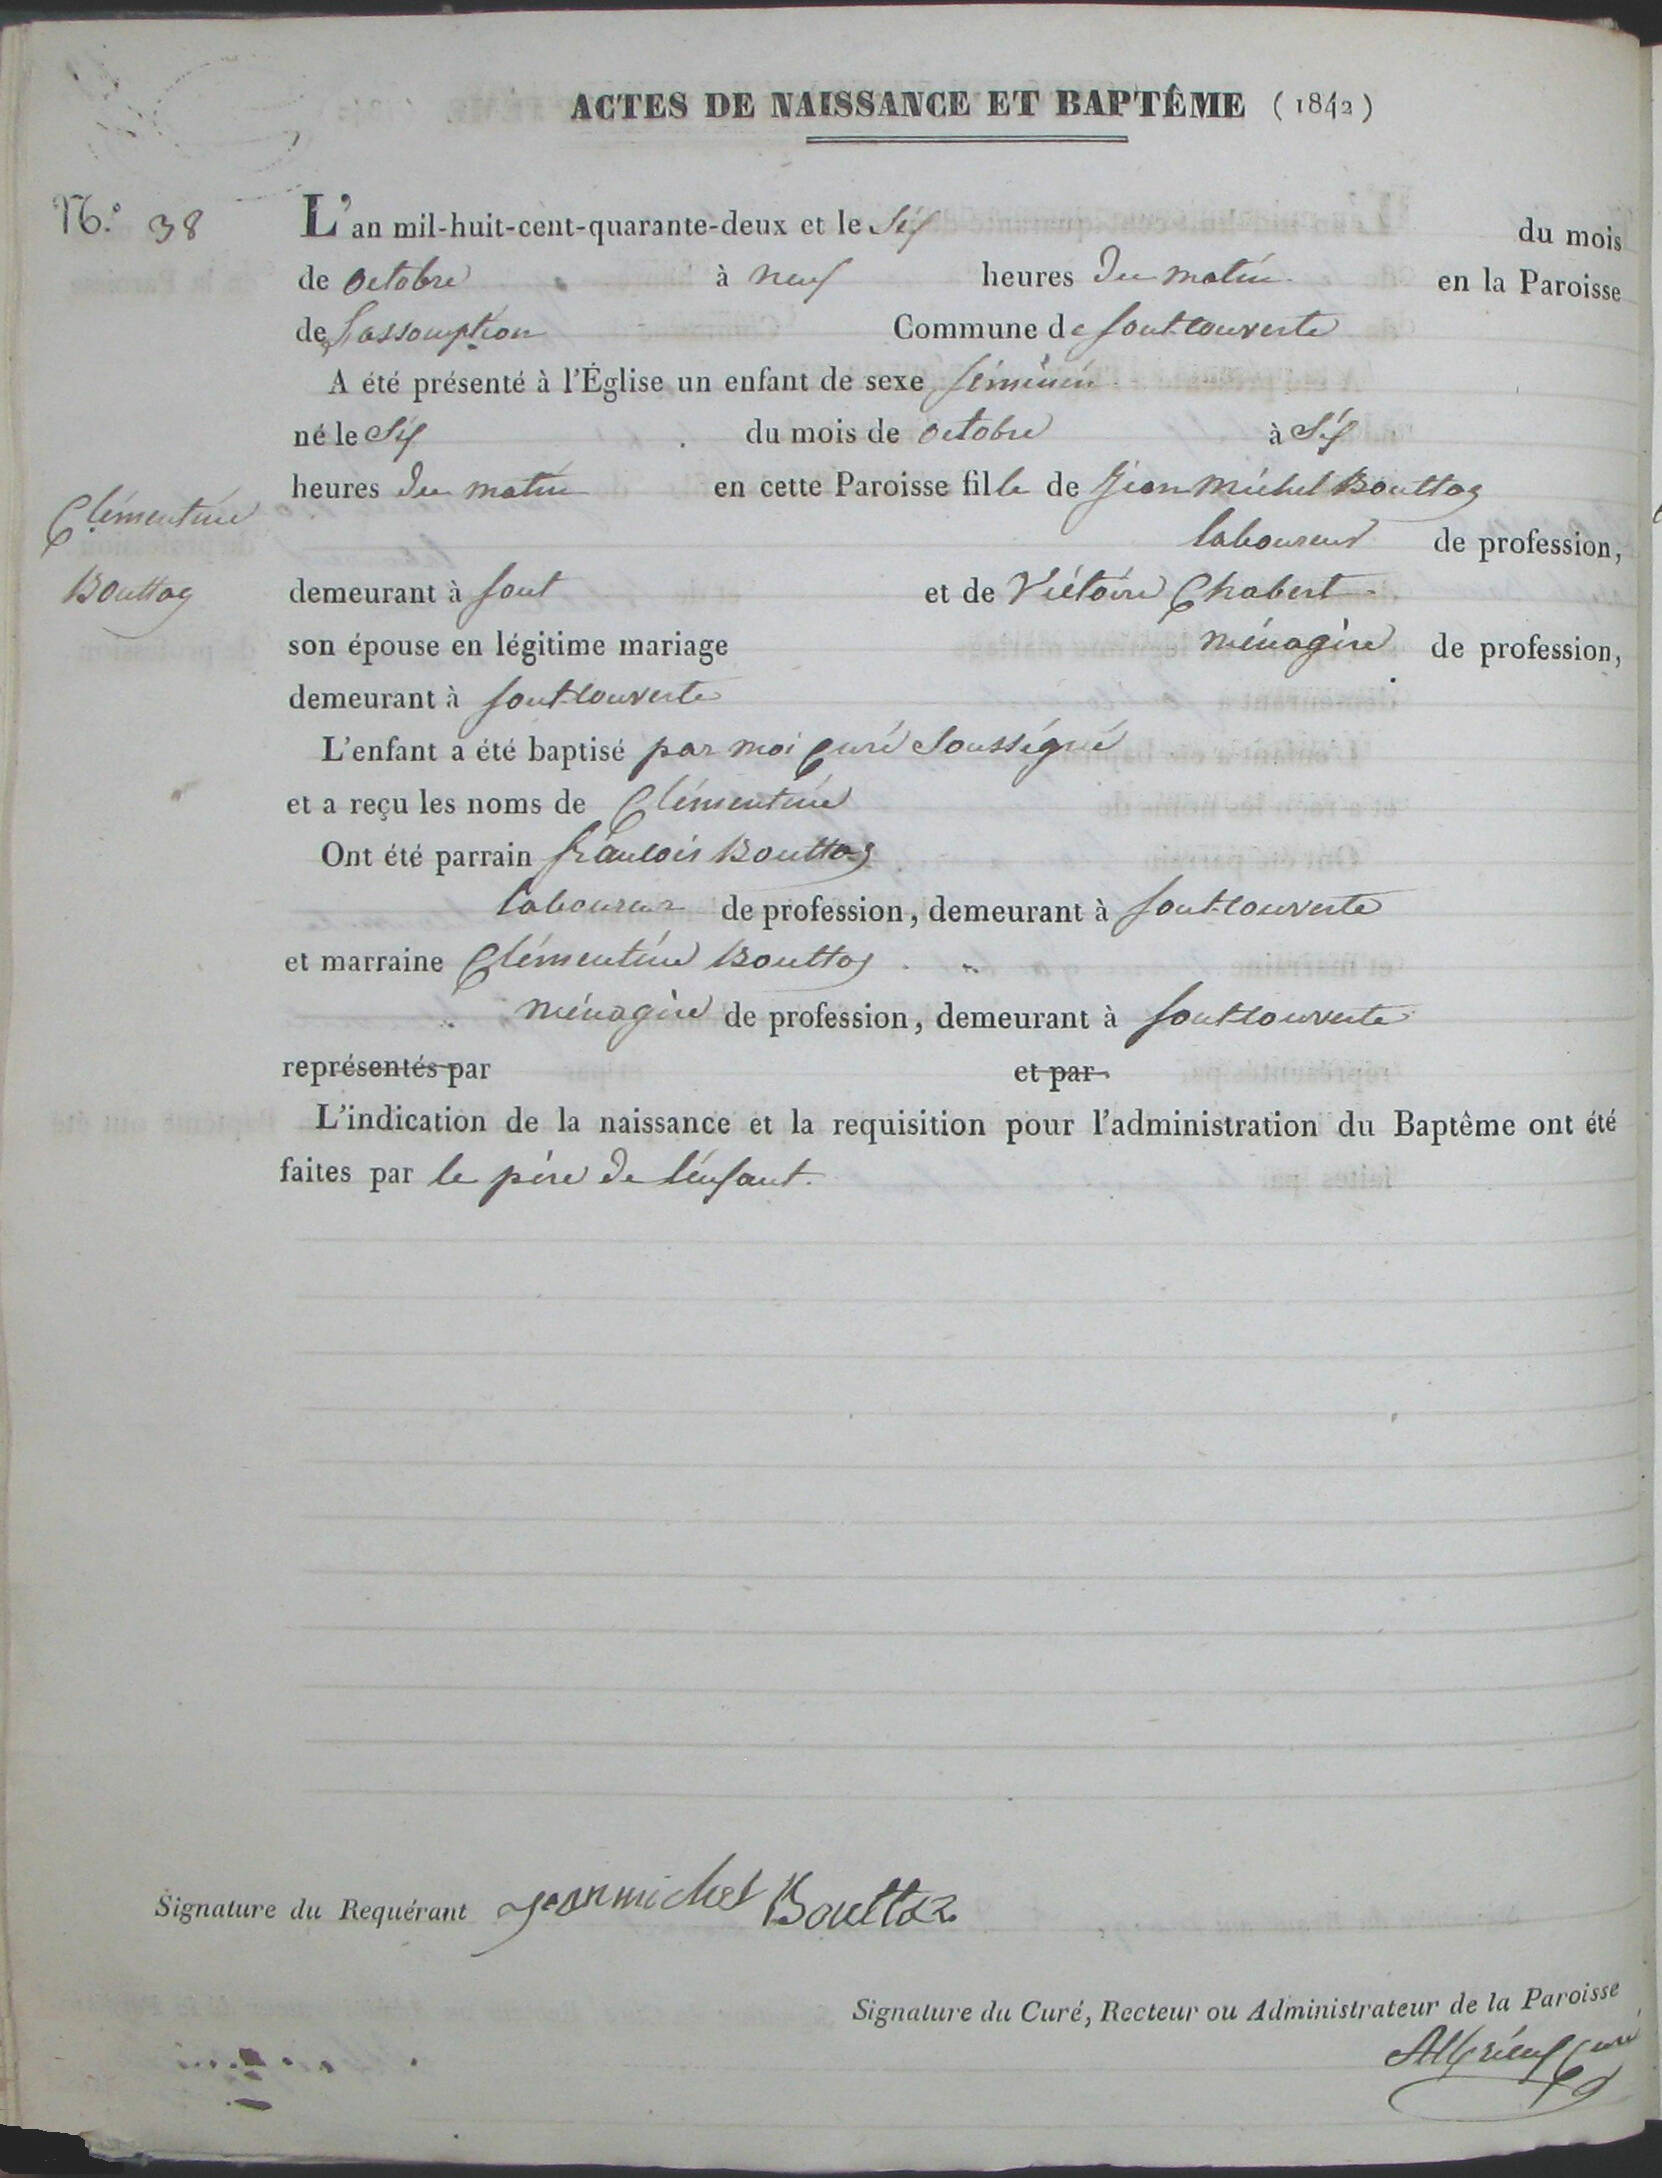 ACTES DE NAISSANCE ET BAPTÊME (1842)
N.° 38
L'an mil-huit-cent-quarante-deux et le Six du mois
de octobre à neuf heures du matin en la Paroisse
de Lassomption Commune de fontcouverte
A été présenté à l'Église un enfant de sexe féminin
né le Six du mois de octobre à Six
heures du matin en cette Paroisse fille de Jean Michel Bouttaz
Clémentine
laboureur de profession,
Bouttaz
demeurant à font et de Victoire Chabert
son épouse en légitime mariage ménagère de profession,
demeurant à fontcouverte
L'enfant a été baptisé par moi Curé Soussigné
et a reçu les noms de Clémentine
Ont été parrain françois Bouttaz
laboureur de profession, demeurant à fontcouverte
et marraine Clémentine Bouttaz
ménagère de profession, demeurant à fontcouverte
représentés par et par
L'indication de la naissance et la requisition pour l'administration du Baptême ont été
faites par le père de l'enfant.
Signature du Requérant Jean michel Bouttaz
Signature du Curé, Recteur ou Administrateur de la Paroisse
Curé